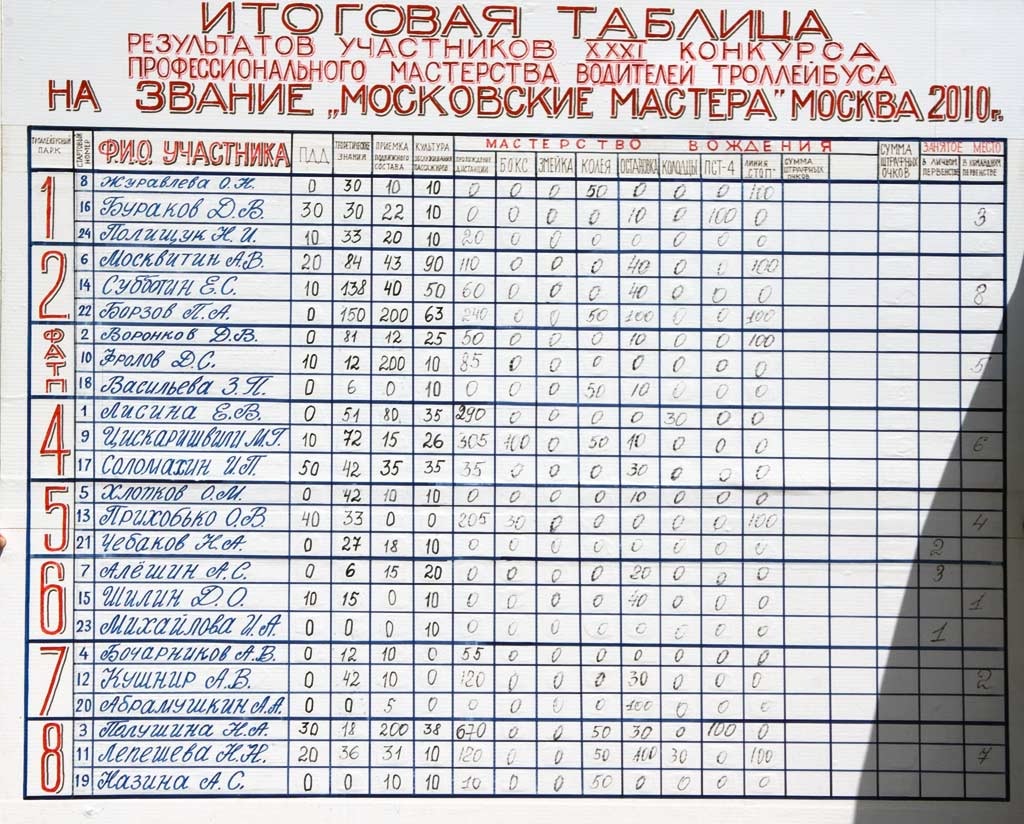 ИТОГОВАЯ ТАБЛИЦА
РЕЗУЛЬТАТОВ УЧАСТНИКОВ XXXI КОНКУРСА
ПРОФЕССИОНАЛЬНОГО МАСТЕРСТВА ВОДИТЕЛЕЙ ТРОЛЛЕЙБУСА
НА ЗВАНИЕ „МОСКОВСКИЕ МАСТЕРА" МОСКВА 2010 г.
ТРОЛЛЕЙБУСНЫЙ ПАРК СТАРТОВЫЙ НОМЕР Ф.И.О. УЧАСТНИКА П.Д.Д. ТЕОРЕТИЧЕСКИЕ ЗНАНИЯ ПРИЕМКА ПОДВИЖНОГО СОСТАВА КУЛЬТУРА ОБСЛУЖИВАНИЯ ПАССАЖИРОВ МАСТЕРСТВО ВОЖДЕНИЯ СУММА ШТРАФНЫХ ОЧКОВ ЗАНЯТОЕ МЕСТО
ПРОХОЖДЕНИЕ ДИСТАНЦИИ БОКС ЗМЕЙКА КОЛЕЯ ОСТАНОВКА КОЛОДЦЫ ПСТ-4 ЛИНИЯ „СТОП" СУММА ШТРАФНЫХ ОЧКОВ В ЛИЧНОМ ПЕРВЕНСТВЕ В КОМАНДНОМ ПЕРВЕНСТВЕ
1 8 Журавлева О.Н. 0 30 10 10 0 0 0 50 0 0 0 100
16 Бураков Д.В. 30 30 22 10 0 0 0 0 10 0 100 0 3
24 Полищук Н.И. 10 33 20 10 20 0 0 0 0 0 0 0
2 6 Москвитин А.В. 20 84 43 90 110 0 0 0 40 0 0 100
14 Субботин Е.С. 10 138 40 50 60 0 0 0 40 0 0 0 8
22 Борзов П.А. 0 150 200 63 240 0 0 50 100 0 0 100
ФАТП 2 Воронков Д.В. 0 81 12 25 50 0 0 0 10 0 0 100
10 Фролов Д.С. 10 12 200 10 85 0 0 0 0 0 0 0 5
18 Васильева З.П. 0 6 0 10 0 0 0 50 10 0 0 0
4 1 Лисина Е.В. 0 51 80 35 290 0 0 0 0 30 0 0
9 Цискаришвили М.Г. 10 72 15 26 305 100 0 50 10 0 0 0 6
17 Соломахин И.П. 50 42 35 35 35 0 0 0 30 0 0 0
5 5 Хлопков О.М. 0 42 10 10 0 0 0 0 10 0 0 0
13 Прихобько О.В. 40 33 0 0 205 30 0 0 0 0 0 100 4
21 Чебаков Н.А. 0 27 18 10 0 0 0 0 0 0 0 0 2
6 7 Алёшин А.С. 0 6 15 20 0 0 0 0 20 0 0 0 3
15 Шилин Д.О. 10 15 0 10 0 0 0 0 40 0 0 0 1
23 Михайлова И.А. 0 0 0 10 0 0 0 0 0 0 0 0 1
7 4 Бочарников А.В. 0 12 10 0 55 0 0 0 0 0 0 0
12 Кушнир А.В. 0 42 10 0 120 0 0 0 30 0 0 0 2
20 Абрамушкин А.А. 0 0 5 0 0 0 0 0 100 0 0 0
8 3 Полушина Н.А. 30 18 200 38 670 0 0 50 30 0 100 0
11 Лепешева Н.Н. 20 36 31 10 120 0 0 50 100 30 0 100 7
19 Казина А.С. 0 0 10 10 10 0 0 50 0 0 0 0